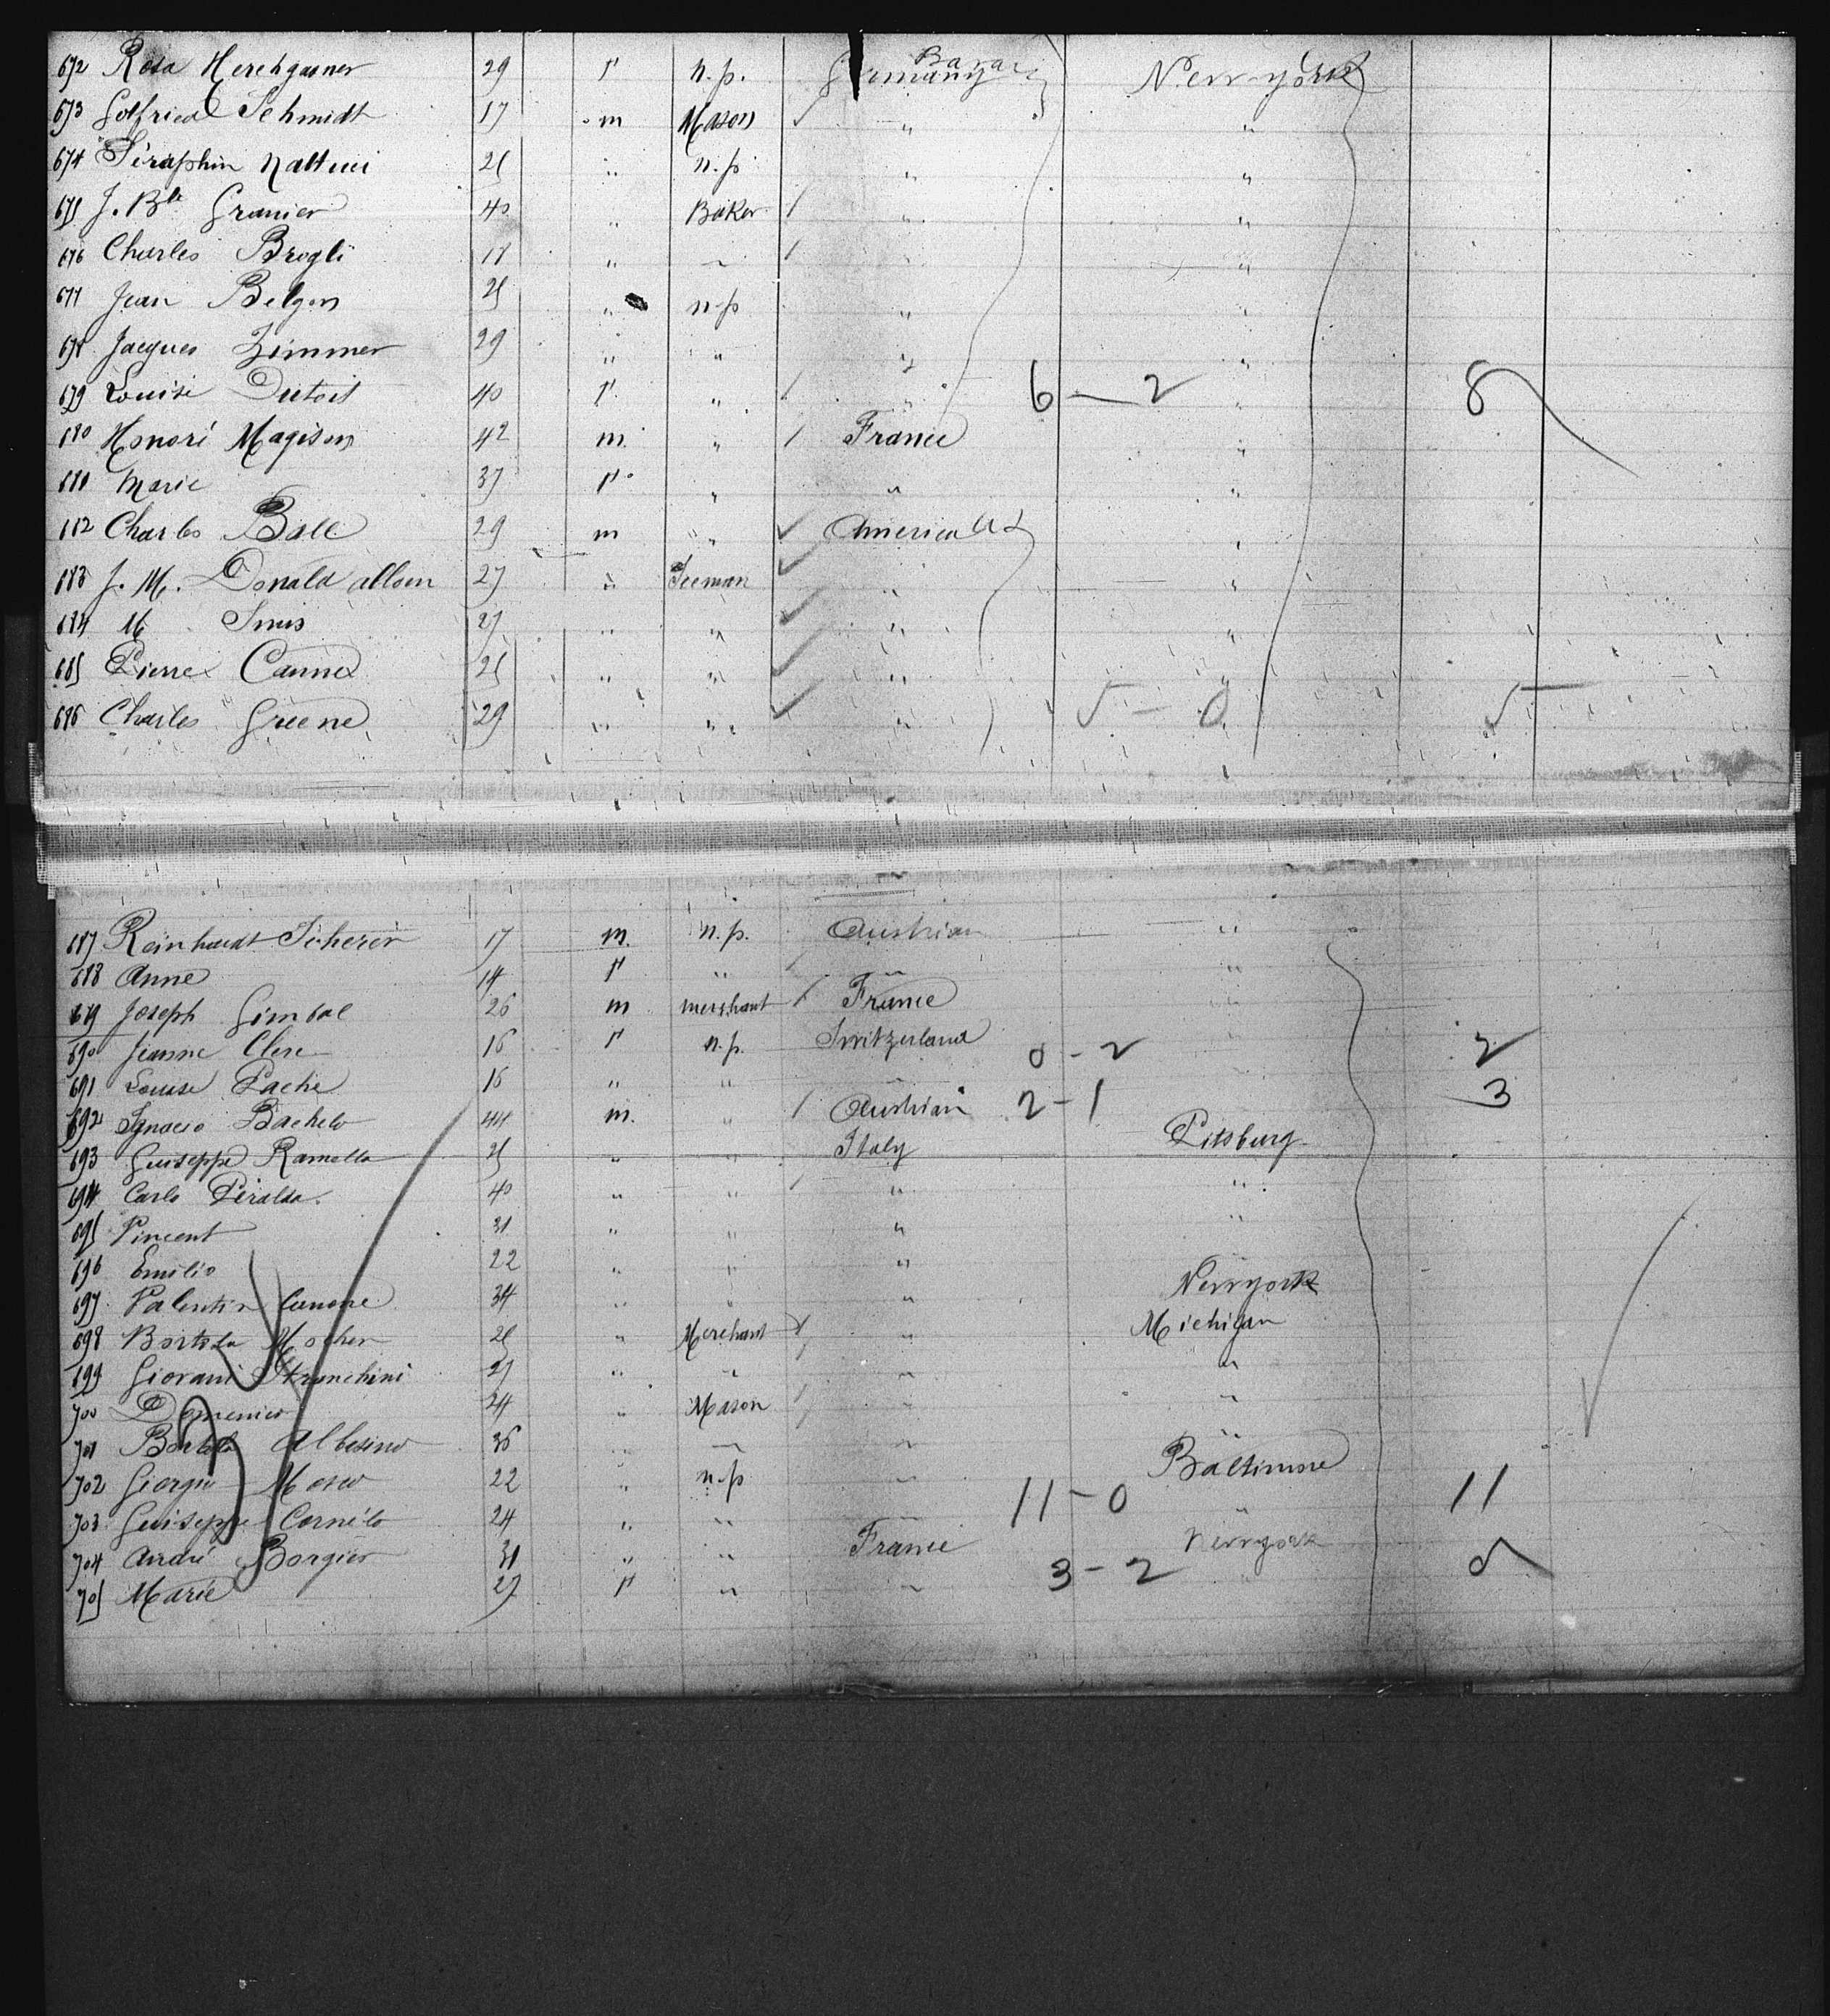 672 Rosa Herchgasner 29 f n.p. Germany Bavar New-york
673 Gotfried Schmidt 17 m Mason " "
674 Séraphin Nattuci 25 " n.p " "
675 J. Bte Granier 40 " Baker " "
676 Charles Brogli 18 " " " "
677 Jean Belgon 25 " n.p " "
678 Jacques Zimmer 29 " " " "
679 Louise Dutoit 40 f " " 6 — 2 " 8
680 Honoré Magison 42 m. " France "
681 Marie 37 f " " "
682 Charles Ball 29 m " America "
683 J. M. Donald alloen 27 " Seeman " "
684 M Smis 27 " " " "
685 Pierre Canne 25 " " " "
686 Charles Greene 29 " " " 5 — 0 5
687 Reinhardt Scherer 17 m. n.p. Austrian "
688 Anne 14 f " " "
689 Joseph Gimbal 26 m merchant France "
690 Jeanne Clerc 16 f n.p. Switzerland 0 - 2 " 2
691 Louise Pache 16 " " " 3
692 Ignacio Bachelo 44 m. " Austrian 2 - 1
693 Guiseppe Ramella 25 " " Italy Pitsburg
694 Carlo Peralda. 40 " " " "
695 Vincent 31 " " " "
696 Emilio 22 " " "
697 Valentin Cunone 34 " " " Newyork
698 Bortolo Mochen 25 " Merchant " Michigan
699 Giovani Stranchini 27 " " " "
700 Domenico 24 " Mason " "
701 Bortolo Albesino 36 " " " "
702 Giorgio Mosco 22 " n.p " Baltimore
703 Guiseppe Cornélo 24 " " " 11 - 0 " 11
704 André Borgier 31 " " France Newyork
705 Marie 27 f " " 3 - 2 "